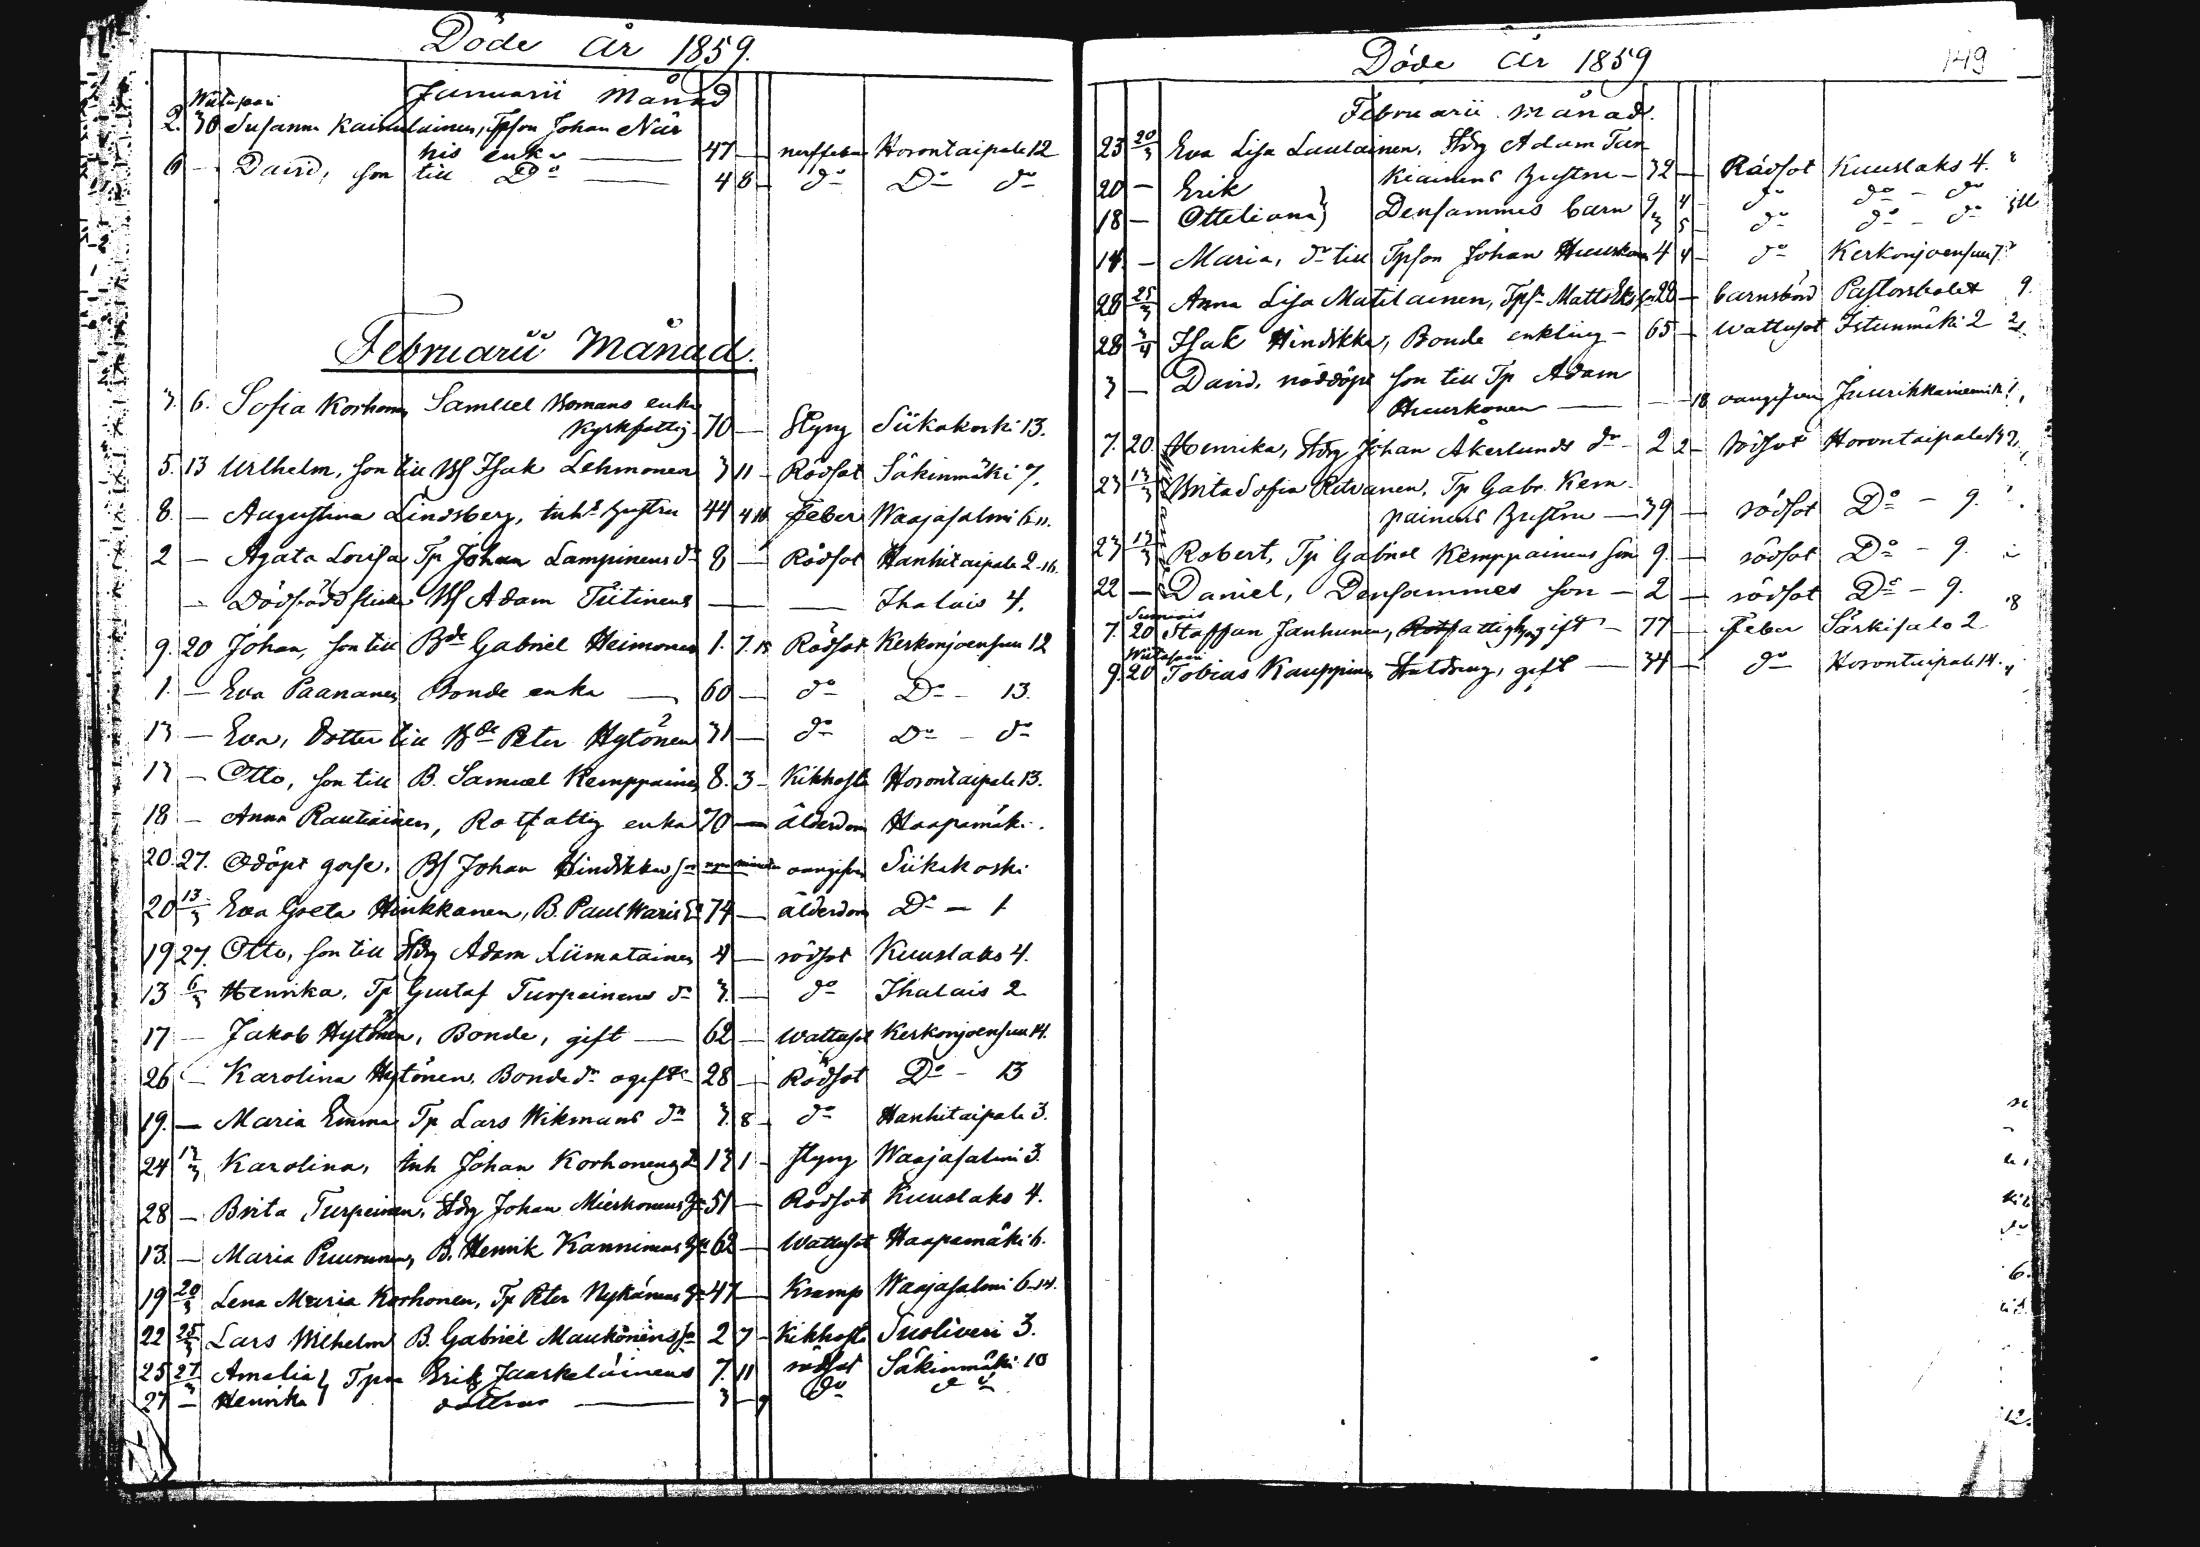 Döde år 1859.
Januarii månad
Wiitasaari
2. 30 Susanna Kainulainen, Tpson Johan När
his enka — 47 — nerffeber Horontaipale 12
6 — David, son till Do — 4 8 — do Do do
Februarii Månad.
3. 6. Sofia Korhonen Samuel Homans enka
Kyrkfattig 70 — Styng Siikakoski 13.
5. 13 Wilhelm, son till Bf Isak Lehmonen 3 11 — Rödsot Säkinmäki 7.
8. — Augustina Lindsberg, Inhs hustru 44 4 18 Feber Waajasalmi 6-11.
2 — Agata Lovisa Tp Johan Lampinens dr 8 — Rödsot Hanhitaipale 2-16.
— Dödfödd flicka Bf Adam Tiitinens — — Ihalais 4.
9. 20 Johan, son till Bde Gabriel Heimonen 1. 7. 15 Rödsot Kerkonjoensuu 12
1. — Eva Paananen Bonde enka — 60 — do Do — 13.
13 — Eva, dotter till Bde Peter Hytönen 31 — do Do — do
17 — Otto, son till B. Samuel Kemppainen 8. 3 — Kikhosta Horontaipale 13.
18 — Anna Rautiainen, Rotfattig enka 70 — ålderdom Haapamäki.
20. 27. Odöpt gosse, Bf Johan Hindikkas son minuter oangifven Siikakoski
20 13/3 Eva Greta Hinkkanen, B. Paul Waris Ea 74 — ålderdom Do — 1
19 27. Otto, son till Hdrg Adam Liimatainen 4 — rödsot Kuuslaks 4.
13 6/3 Henrika, Tp Gustaf Turpeinens dr 3. — do Ihalais 2
17 — Jakob Hytönen, Bonde, gift — 62 — Wattusot Kerkonjoensuu 14.
26 — Karolina Hytönen, Bonde dr ogift 28 — Rödsot Do — 13
19. — Maria Emma Tp Lars Wikmans dr 3. 8 — do Hanhitaipale 3.
24 13/3 Karolina, Inh Johan Korhonens dr 13 1 — styng Waajasalmi 3.
28 — Brita Turpeinen, Hdrg Johan Mierkonens hu 51 — Rödsot Kuuslaks 4.
13. — Maria Puurunen, B. Henrik Kanninens hu 62 — Wattusot Haapamäki 6.
19 20/3 Lena Maria Korhonen, Tp Peter Nykänens hu 47 — Kramp Waajasalmi 6-14.
22 25/3 Lars Wilhelm B. Gabriel Maukonens so 2 7 — Kikhosta Suoliveri 3.
25 27/3 Amalia } Tpn Erik Jääskeläinens 7. 11 rödsot Säkinmäki 10
27 — Henrika } döttrar — 3 — 9 do do
Döde år 1859
149
Februarii månad.
23 20/3 Eva Lisa Laulainen, Hdrg Adam Tur
kiainens hustru — 32 — Rödsot Kuuslaks 4.
20 — Erik } 9 4 — do do — do
18 — Otteliana } Densammes barn 3 5 — do do — do
14. — Maria, dr till Tpson Johan Huuskonen 4 4 — do Kerkonjoensuu 7.
28 25/3 Anna Lisa Matilainen, Tps Matts 28 — barnsbörd Pastorsbolet 9.
28 3/4 Isak Hindikka, Bonde enkling — 65 — Wattusot Istunmäki 2
3 — David, nöddöpt son till Tp Adam
Huuskonen — — 18 oangifven Juurikkaniemi
7. 20. Henrika, Hdrg Johan Åkerlunds dr — 2 2 — Rödsot Horontaipale 13
23 13/3 Brita Sofia Ritvanen, Tp Gabr. Kem
painens hustru — 39 — rödsot Do — 9.
23 13/3 Robert, Tp Gabriel Kemppainens son 9. — rödsot Do — 9.
22 — Daniel, Densammes son — 2 — rödsot Do — 9.
Sumiais
7. 20 Staffan Janhunen, gift — 77 — Feber Särkisalo 2
Wiitasaari
9. 20 Tobias Kauppinen gift — 34 — do Horontaipale 14.